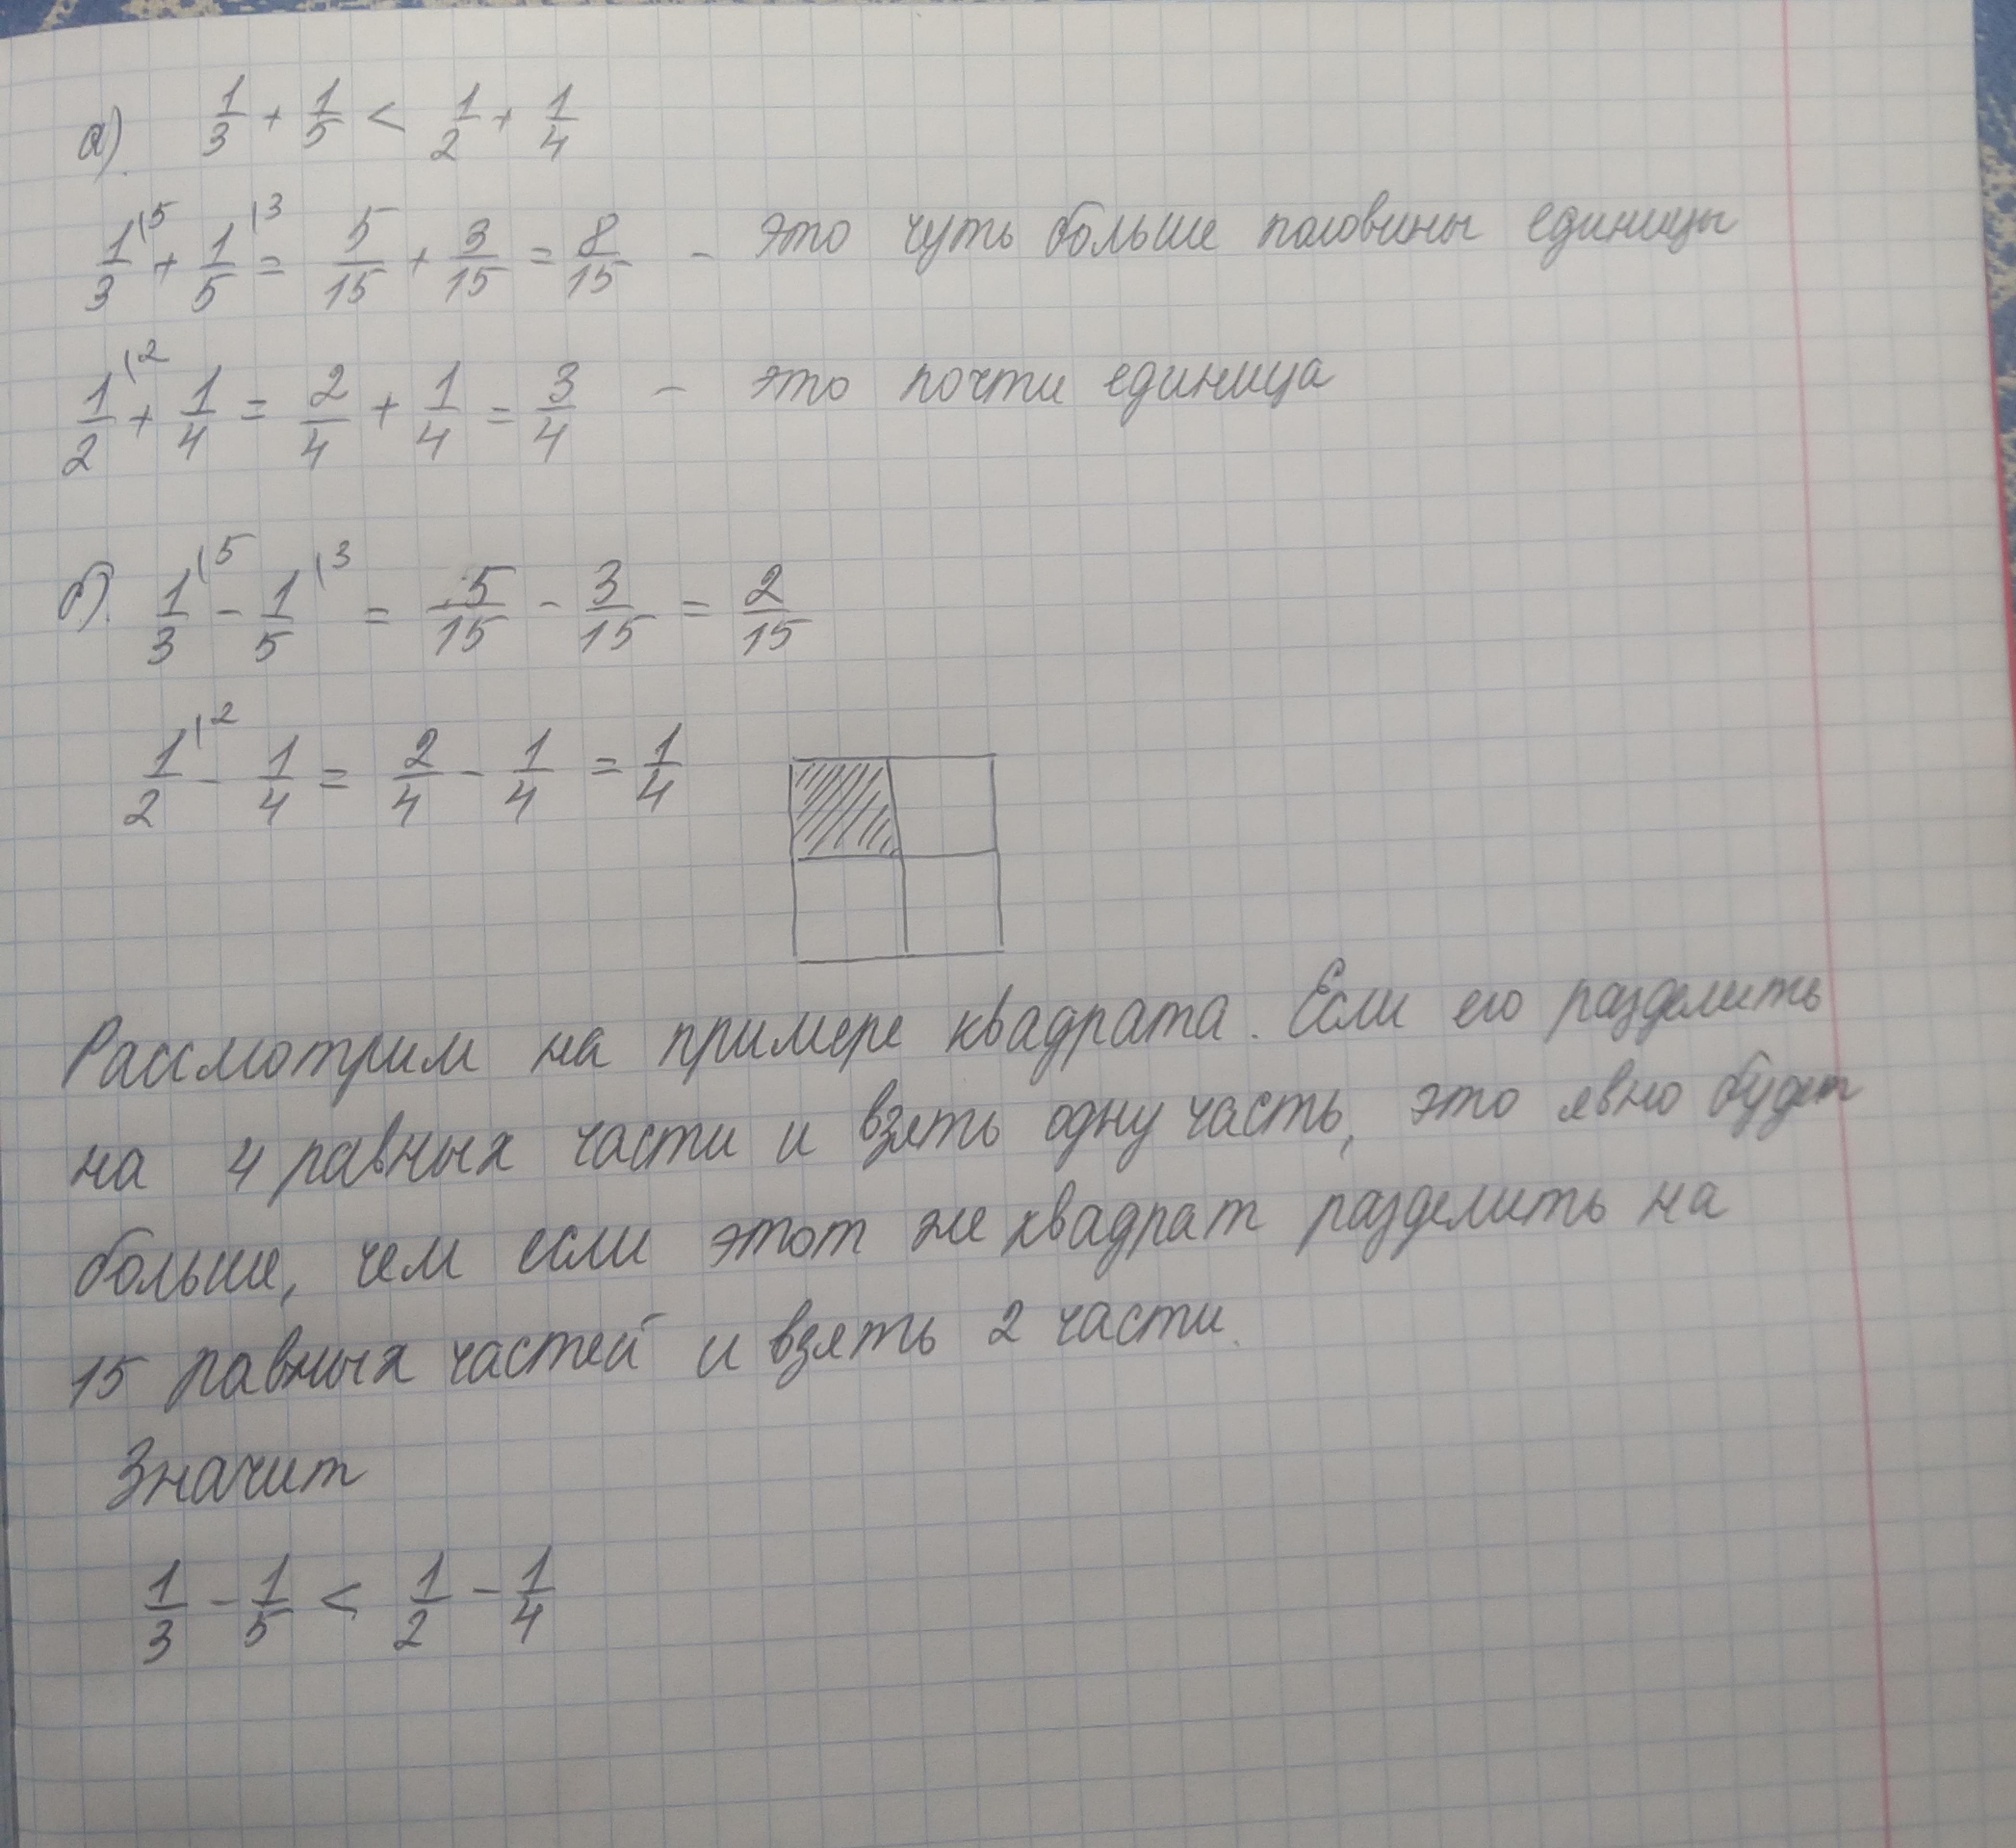 а). 1/3 + 1/5 < 1/2 + 1/4
1/3 \5 + 1/5 \3 = 5/15 + 3/15 = 8/15 - это чуть больше половины единицы
1/2 \2 + 1/4 = 2/4 + 1/4 = 3/4 - это почти единица
б). 1/3 \5 - 1/5 \3 = 5/15 - 3/15 = 2/15
1/2 \2 - 1/4 = 2/4 - 1/4 = 1/4
Рассмотрим на примере квадрата. Если его разделить
на 4 равных части и взять одну часть, это явно будет
больше, чем если этот же квадрат разделить на
15 равных частей и взять 2 части.
Значит
1/3 - 1/5 < 1/2 - 1/4